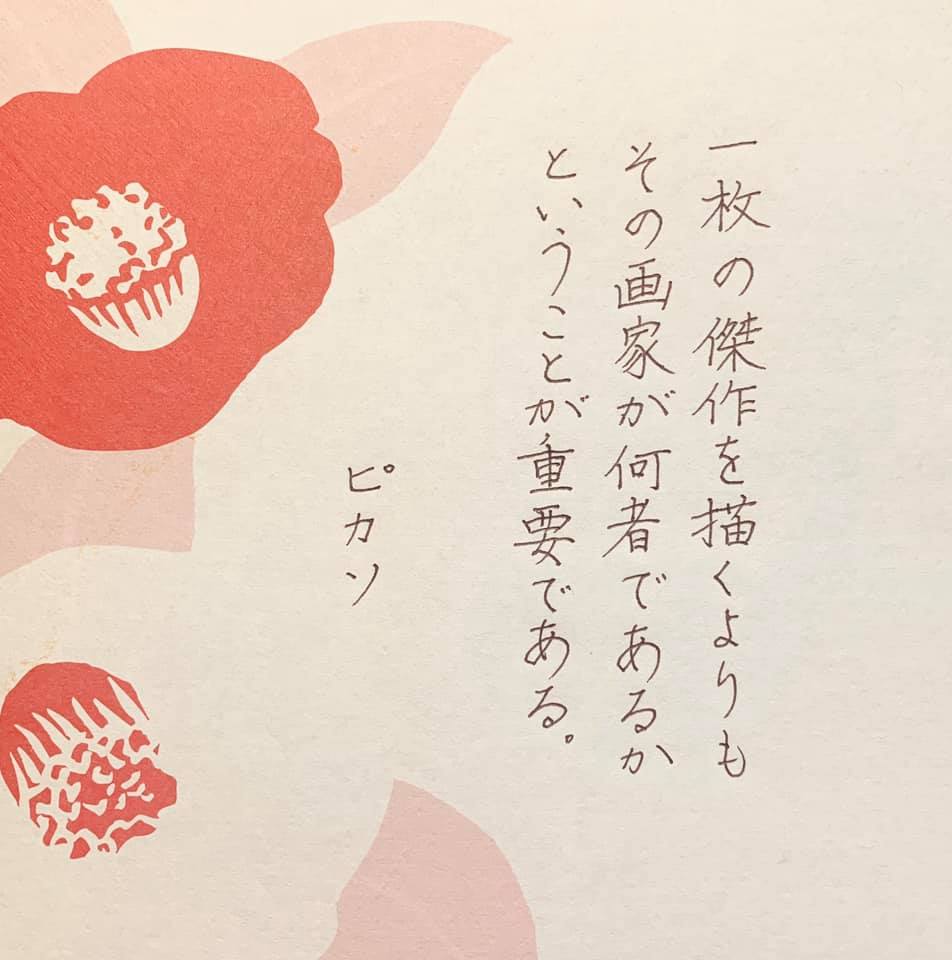 一枚の傑作を描くよりも
その画家が何者であるか
ということが重要である。
ピカソ